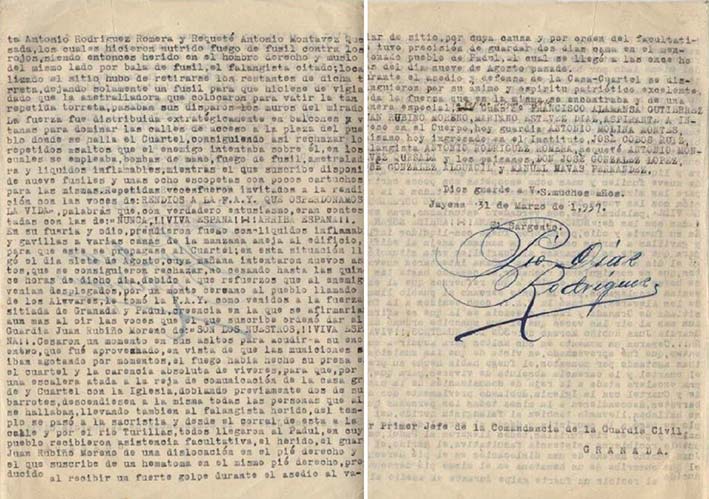 te Antonio Rodriguez Romera y Requeté Antonio Montavez Que
sada,los cuales hicieron nutrido fuego de fusil contra los
rojos,siendo entonces herido en el hombro derecho y muslo
del mismo lado por bala de fusil,el falangista citado;loca
lizado el sitio hubo de retirarse los restantes de dicha
rreta,dejando solamente un fusil para que hiciese de vigía
dado que la ametralladora que colocaron para vatir la tan
repetida torreta,pasaban sus disparos los muros del mirado
La fuerza fue distribuida extratégicamente en balcones y
tanas para dominar las calles de acceso a la plaza del pue
blo donde se halla el Cuartel,consiguiendo así rechazar lo
repetidos asaltos que el enemigo intentaba sobre él,en los
cuales se empleaba,bombas de mano,fuego de fusil,ametralla
ra y liquidos inflamables,mientras el que suscribe disponi
de nueve fusiles y unas ocho escopetas con pocos cartuchos
para las mismas.Repetidas veces fueron invitados a la rendi
ción con las voces de: RENDIOS A LA F.A.Y. QUE OS PERDONAMOS
LA VIDA, palabras que,con verdadero entusiasmo,eran contes
tadas con las de: NUNCA,!!VIVA ESPAÑA!!!!ARRIBA ESPAÑA!!.
En su furia y odio,prendieron fuego con liquidos inflamab
y gavillas a varias casas de la manzana aneja al edificio,
para que este se propagase al Cuartel; en esta situación ll
gó el día siete de Agosto,cuya mañana intentaron nuevos as
tos,que se consiguieron rechazar,no cesando hasta las quin
ce horas de dicho dia,debido a que refuerzos que al enemigo
venian desplegados,por un monte cercano pueblo llamado
de los Alevares,le tomó la F.A.Y. como venidos a la fuerza
sitiada de Granada y Padul,creencia en la que se afirmaria
aun mas al oir las voces que el que suscribe ordenó dar al
Guardia Juan Rubiño Moreno de: SON LOS NUESTROS,!!VIVA ESP
ÑA!!.Cesaron un momento en sus asltos para acudir a su enc
entro,que fué aprovechado,en vista de que las municiones s
iban agotando por momentos,el fuego habia hecho su presa e
el cuartel y la carencia absoluta de viveres,para que,por
una escalera atada a la reja de comunicación de la casa gr
de y Cuartel con la Iglesia,doblando previamente dos de su
barrotes,descendiesen a la misma todas las personas que al
se hallaban,llevando tambien al falangista herido,del tem-
plo se pasó a la sacristía y desde el corral,de esta a la
calle y por el río Turillas,todos llegaron al Padul,en cuy
pueblo recibieron asistencia facultativa,el herido,el guar
Juan Rubiño Moreno de una dislocación en el pié derecho y
el que suscribe de un hematoma en el mismo pié derecho,pro
ducido al recibir un fuerte golpe durante el asedio al va-
iar de sitio,por cuya causa y por orden del facultati-
tuvo precisión de guardar dos dias cama en el men-
onado pueblo de Padul,al cual se llegó a las once ho
s del dia nueve de Agosto pasado.
rante el asedio y defensa de la Casa-Cuartel se dis-
nguieron por su animo y espiritu patriótico exelente,
da la fuerza que en la misma se encontraba y de una
nera especial FRANCISCO ALAMINOS GUTIERREZ
UAN RUBIÑO MORENO, MARIANO ESTEVEZ DIAZ,ASPIRANTE, A IN-
eso en el Cuerpo,hoy guardia ANTONIO MOLINA MONTES,
aisano hoy ingresado en el Instituto, JOSE COBOS RUIZ,
langista ANTONIO RODRIGUEZ ROMERA, Requeté ANTONIO MON-
VEZ QUESADA y los paisanos, DON JOSE GONZALEZ LOPEZ,
SE GONZALEZ y MANUEL NAVAS FERNANDEZ.
Dios guarde a V.S.muchos años.
Jayena 31 de Marzo de 1.937.
El Sargento.
Pío Díaz
Rodríguez
r Primer Jefe de la Comandancia de la Guardia Civil,
GRANADA.